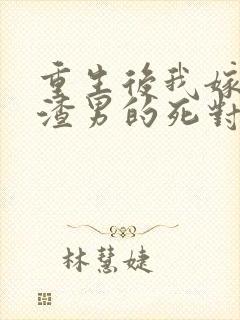 重生後我嫁
渣男的死對
林慧婕